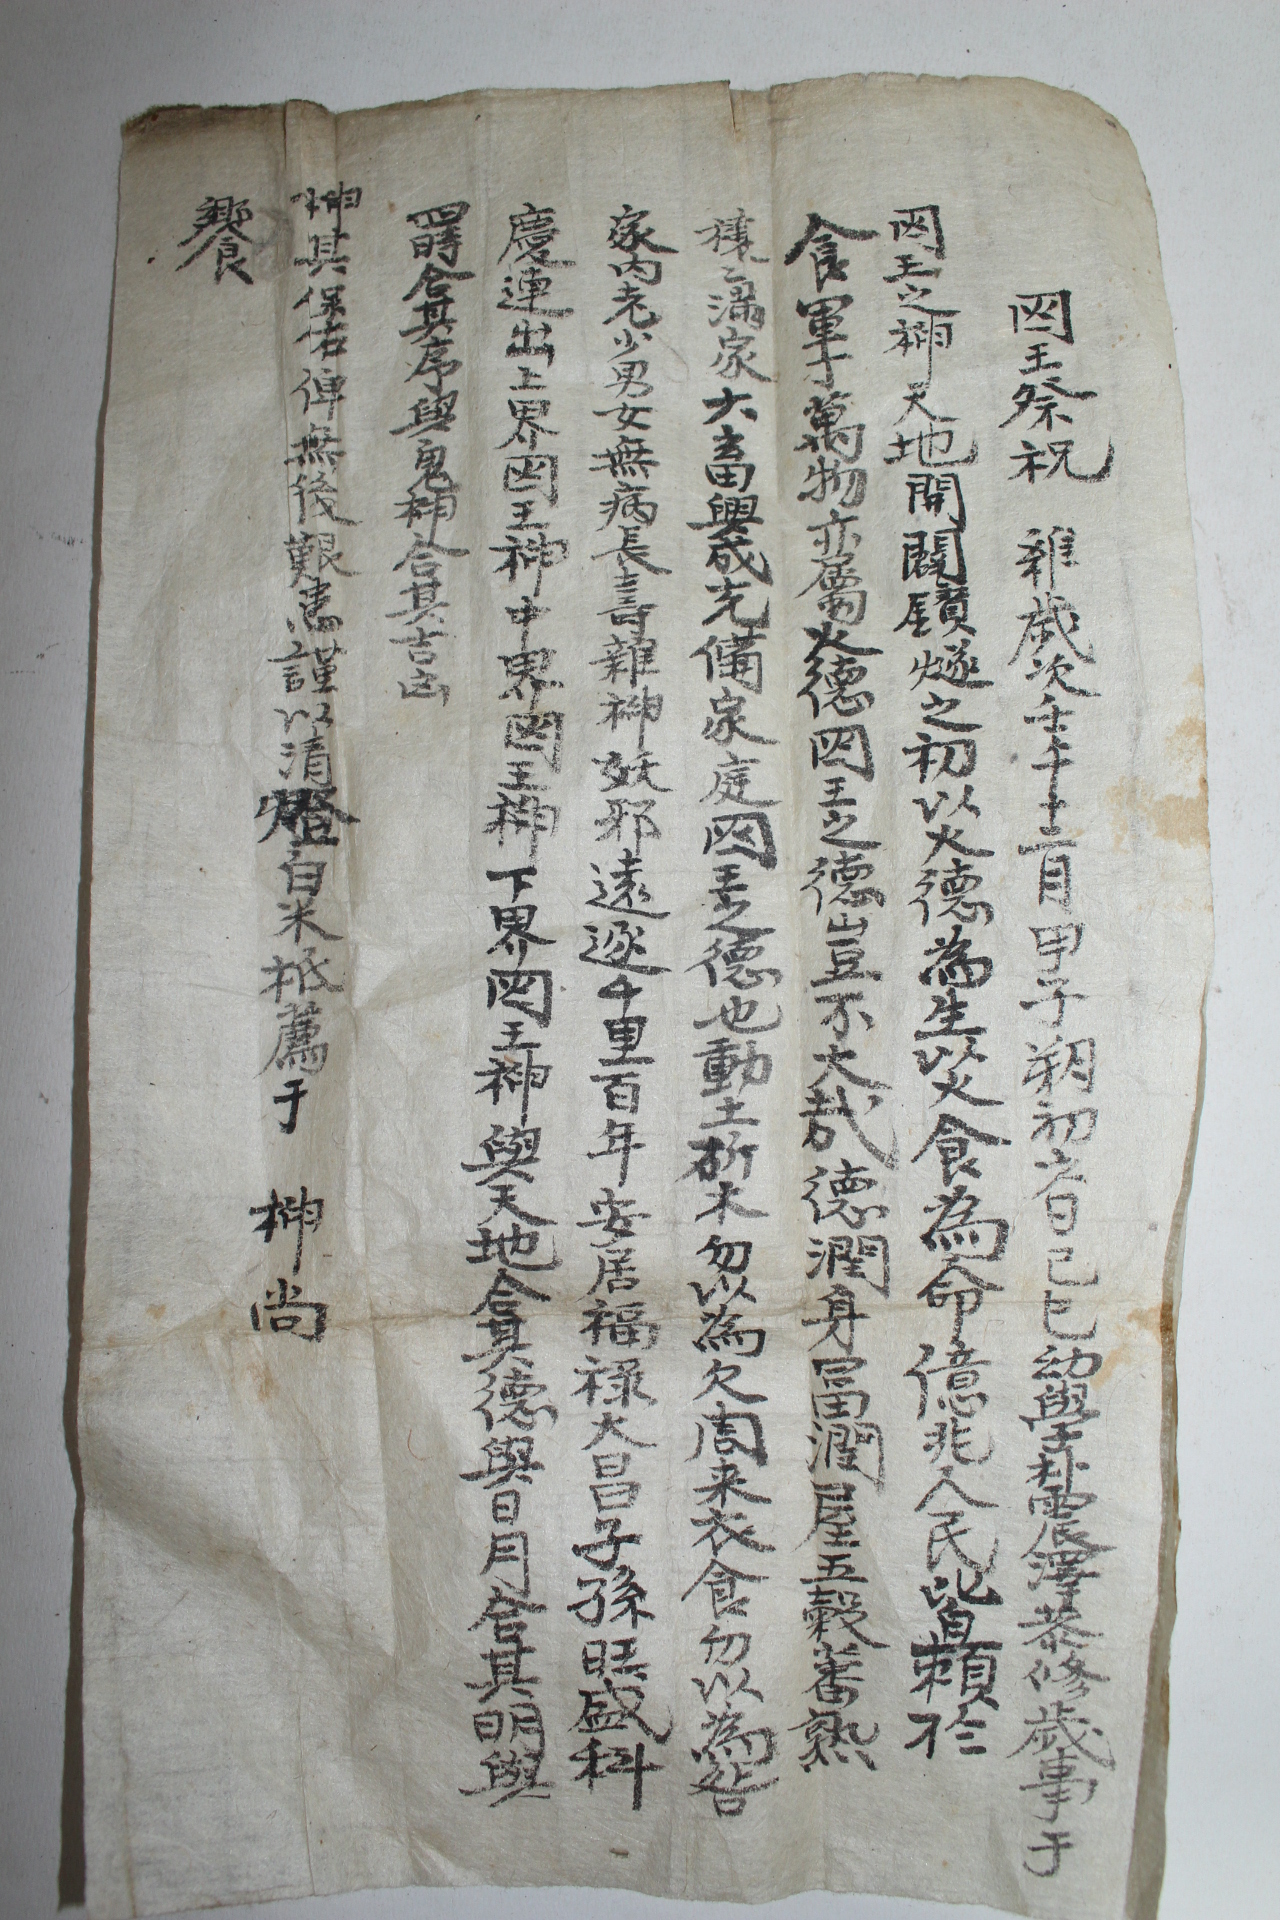 囟王祭祝 維歲次壬午十二月甲子朔初六日己巳幼學朴震澤恭修歲事于
囟王之神天地開闢鑽燧之初以火德為生以火食為命億兆人民皆賴於
食軍才萬物亦屬火德囟王之德豈不大哉德潤身富潤屋五穀蕃熟
穰〻滿家六畜興成充備家庭囟王之德也動土斫木勿以為欠周来衣食勿以為咎
家内老少男女無病長壽雜神妖邪遠逐千里百年安居福祿大昌子孫旺盛科
慶連出上界囟王神中界囟王神下界囟王神與天地合其德與日月合其明與
四時合其序與鬼神合其吉凶
神其保佑俾無後艱謹以清燈白米祗薦于 神尚
饗